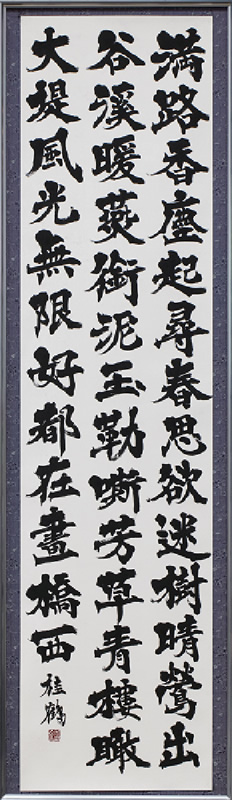 満路香塵起尋春思欲迷樹晴鶯出
谷溪暖燕銜泥玉勒嘶芳草青樓瞰
大堤風光無限好都在畫橋西
桂鶴